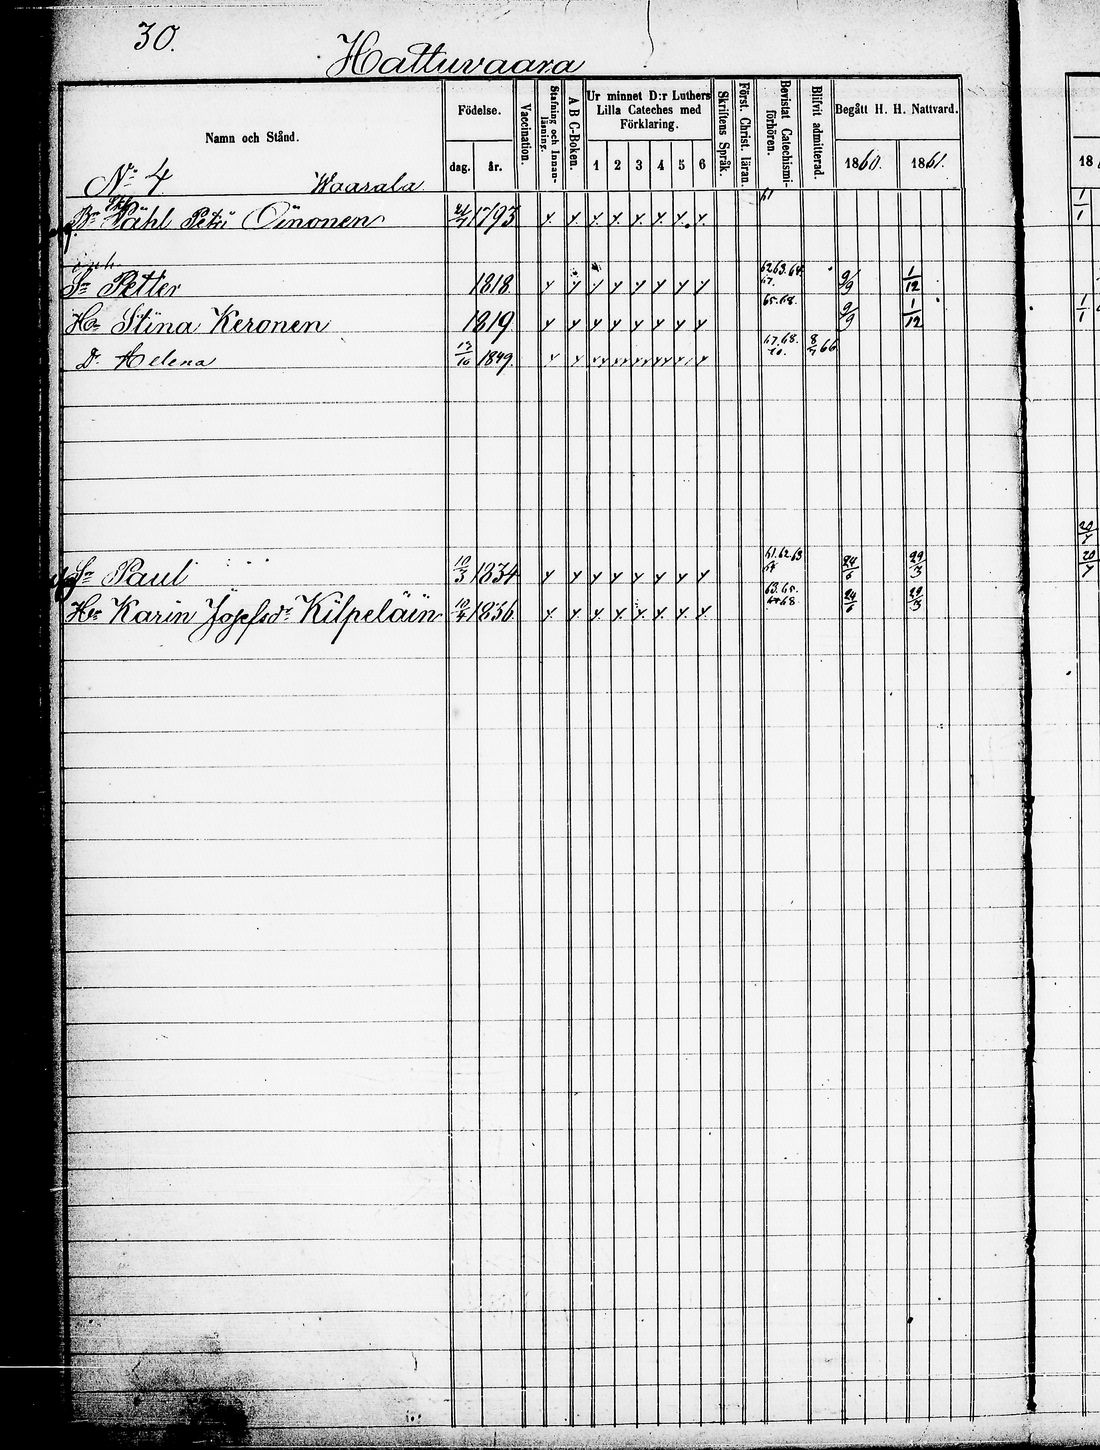 30.
Hattuvaara
Namn och Stånd.
Födelse.
dag. år.
Vaccination.
Stafning och Innan-läsning.
A B C-Boken.
Ur minnet D:r Luthers Lilla Cateches med Förklaring.
1 2 3 4 5 6
Skriftens Språk.
Först. Christ. läran.
Bevistat Catechismi-förhören.
Blifvit admitterad.
Begått H. H. Nattvard.
1860. 1861. 18
No 4 Waasala
Br Påhl Petri Oinonen 1793 61 1/1
Sn Petter 1818 62.63.64. 67. 9/9 1/12
Hu Stina Keronen 1819 65.68. 9/9 1/12 1/1
Dr Helena 1849. 67.68. 66
Sn Paul 10/3 1834 61.62.63 24/6 29/3 20/7
Hu Karin Josefsdr Kilpeläin 1836 24/6 29/3